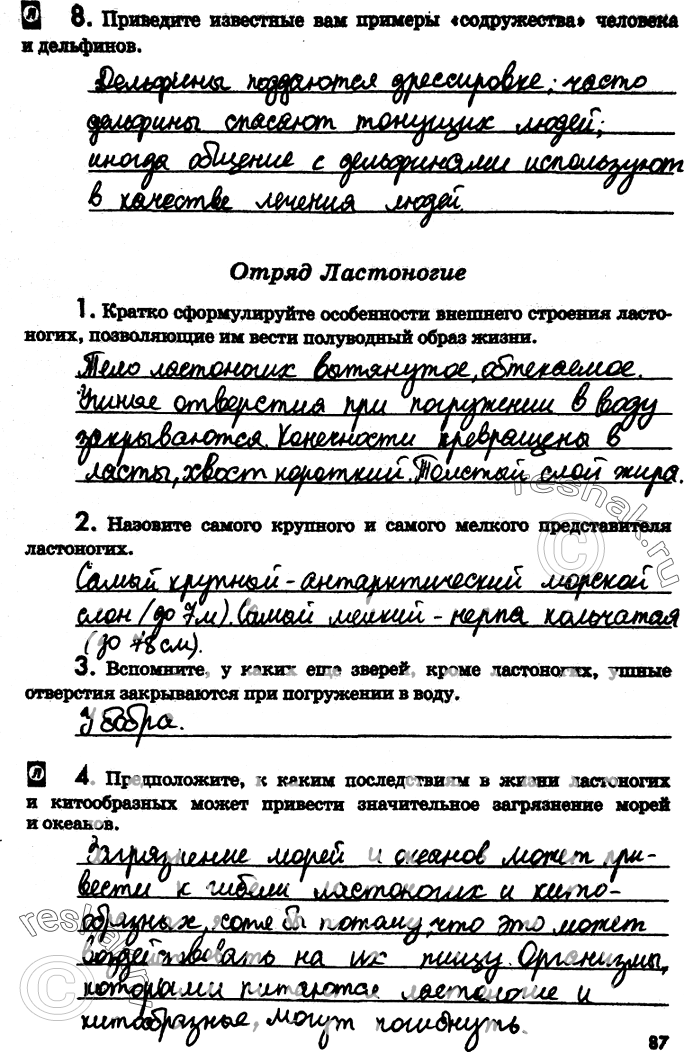 Л 8. Приведите известные вам примеры «содружества» человека
и дельфинов.
Дельфины поддаются дрессировке; часто
дельфины спасают тонущих людей;
иногда общение с дельфинами используют
в качестве лечения людей.
Отряд Ластоногие
1. Кратко сформулируйте особенности внешнего строения ласто-
ногих, позволяющие им вести полуводный образ жизни.
Тело ластоногих вытянутое, обтекаемое.
Ушные отверстия при погружении в воду
закрываются. Конечности превращены в
ласты, хвост короткий. Толстый слой жира.
2. Назовите самого крупного и самого мелкого представителя
ластоногих.
Самый крупный - антарктический морской
слон (до 7 м). Самый мелкий - нерпа кольчатая
(до 78 см).
3. Вспомните, у каких еще зверей, кроме ластоногих, ушные
отверстия закрываются при погружении в воду.
У бобра.
Л 4. Предположите, к каким последствиям в жизни ластоногих
и китообразных может привести значительное загрязнение морей
и океанов.
Загрязнение морей и океанов может при-
вести к гибели ластоногих и кито-
образных, хотя бы потому, что это может
воздействовать на их пищу. Организмы,
которыми питаются ластоногие и
китообразные, могут погибнуть.
87
reshak.ru
reshak.ru